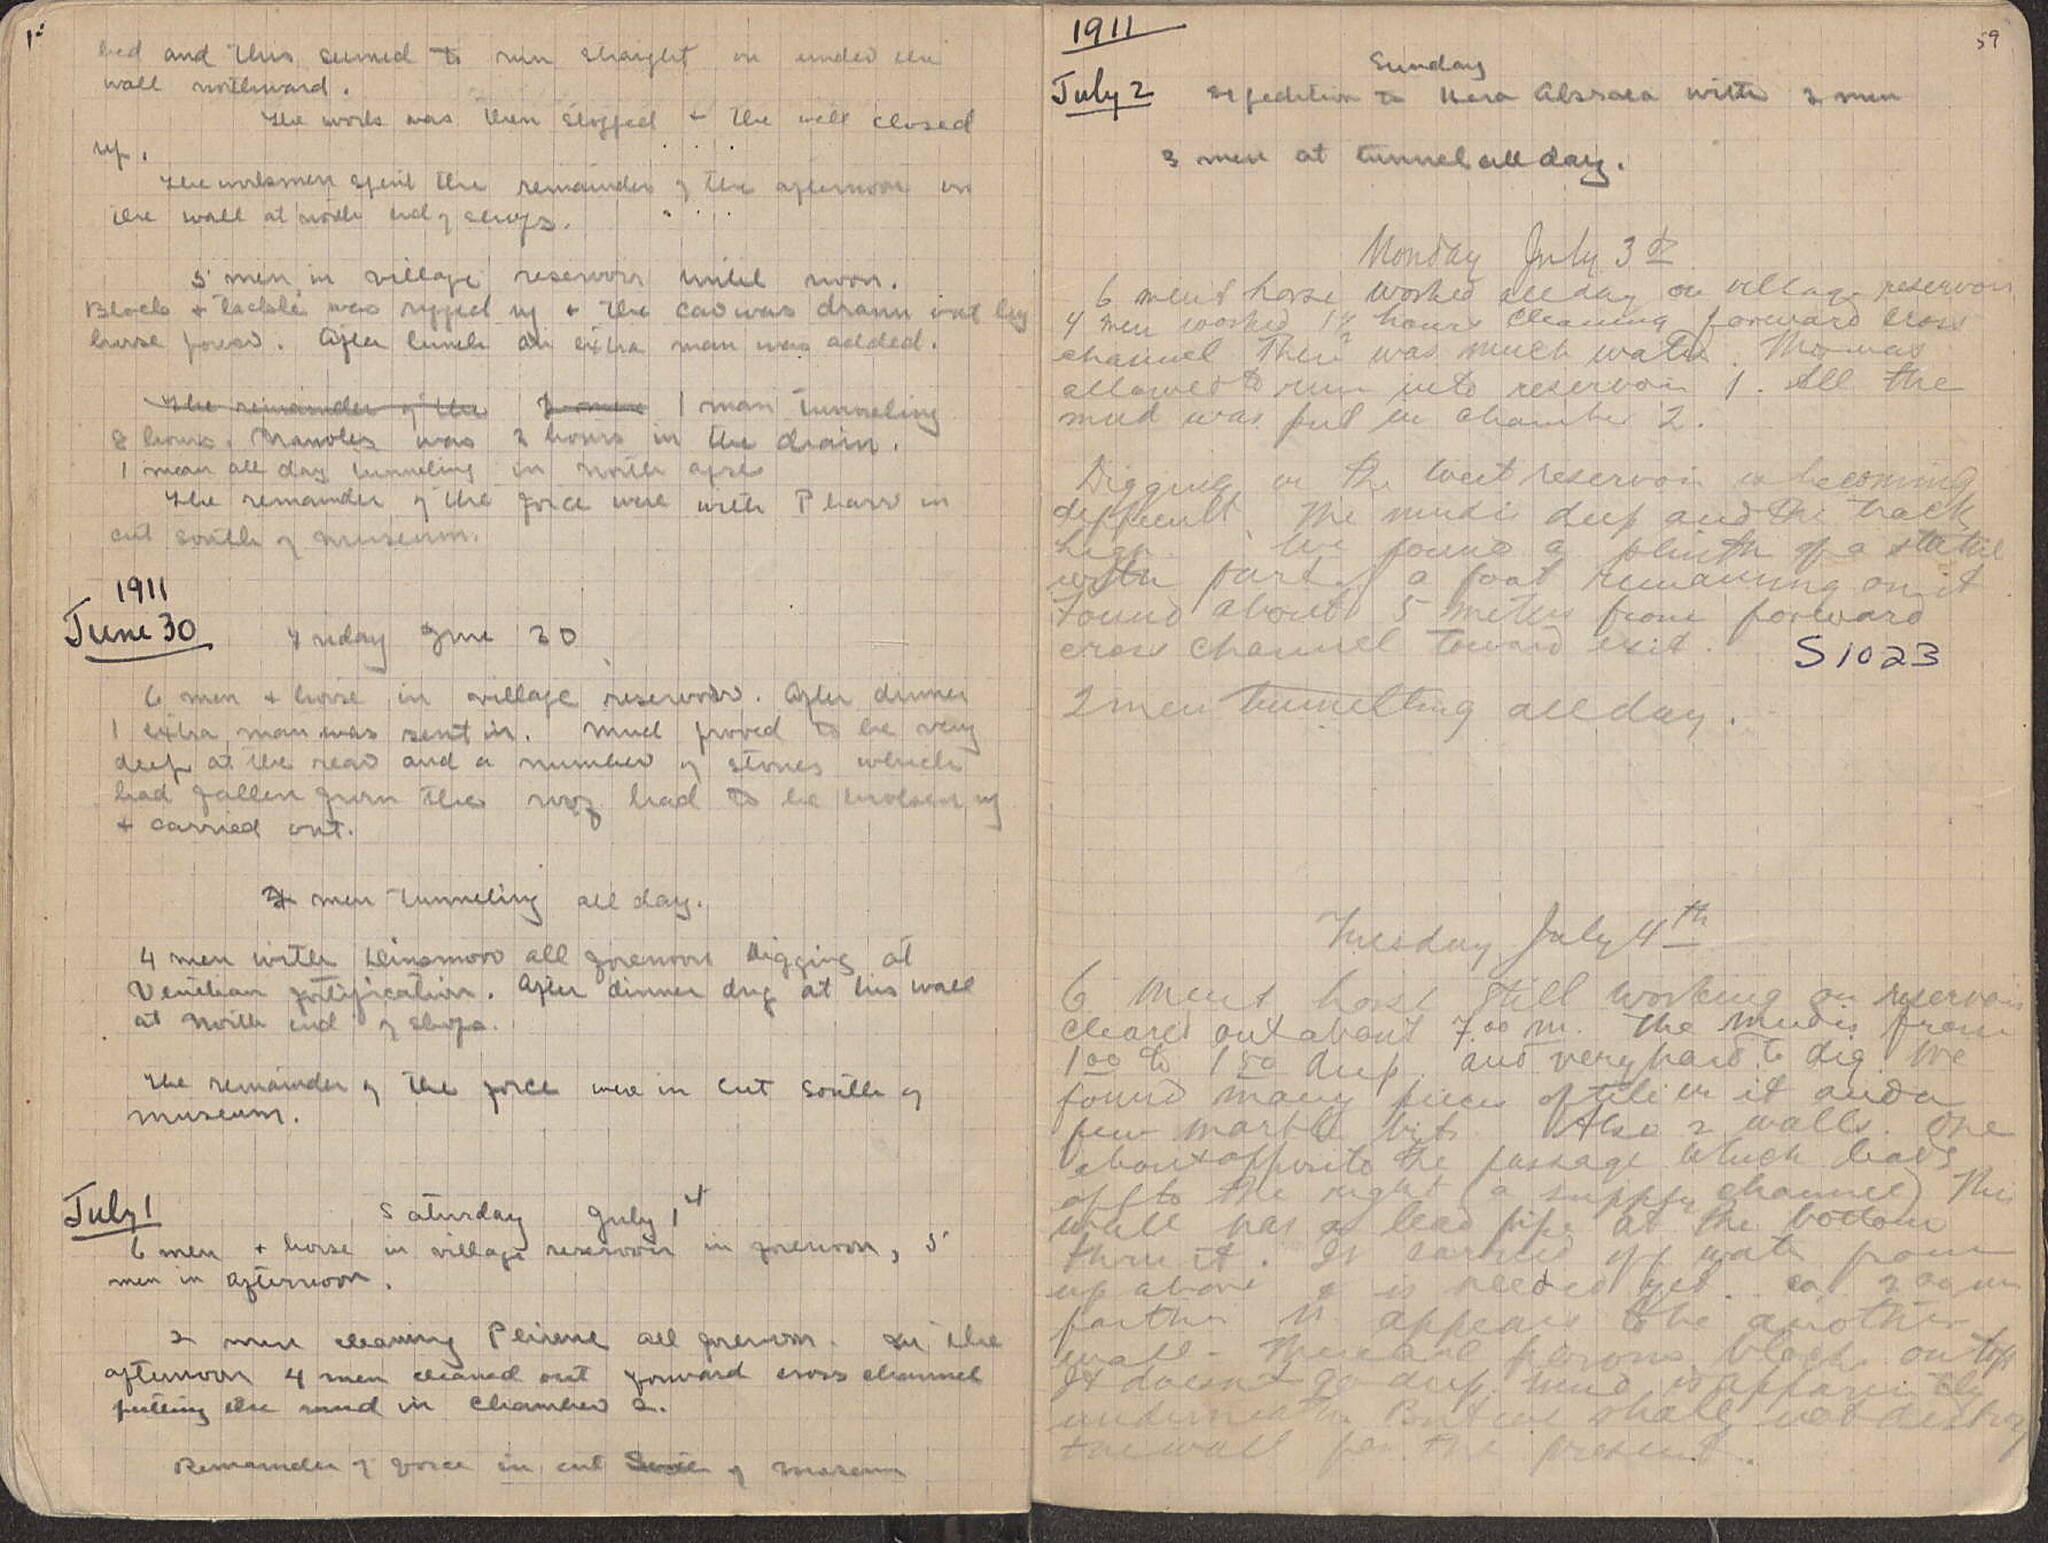 bed and this seemed to run straight on under the
wall northward.
The work was then stopped + the well closed
up.
The workmen spent the remainder of the afternoon on
the wall at north end of shops.
5 men in village reservoir until noon.
Block + tackle was rigged up + the car was drawn out by
horse power. After lunch an extra man was added.
The remainder of the 2 men 1 man tunneling
8 hours. Manolis was 2 hours in the drain.
1 man all day tunneling in north apse
The remainder of the force were with Pharr in
cut south of museum.
1911
June 30
Friday June 30
6 men + horse in village reservoir. After dinner
1 extra man was sent in. Mud proved to be very
deep at the rear and a number of stones which
had fallen from the roof had to be broken up
+ carried out.
2 men tunneling all day.
4 men with Dinsmoor all forenoon digging at
Venetian fortification. After dinner dug at his wall
at north end of shops.
The remainder of the force were in cut south of
museum.
July 1
Saturday July 1st
6 men + horse in village reservoir in forenoon, 5
men in afternoon.
2 men cleaning Pirene all forenoon. In the
afternoon 4 men cleaned out forward cross channel
putting the mud in Chamber 2.
Remainder of force in cut South of museum
1911
59
July 2
Sunday
Expedition to Hera Akraea with 2 men
3 men at tunnel all day.
Monday July 3d
6 men & horse worked all day on village reservoir
4 men worked 1½ hours cleaning forward cross
channel There was much water. This was
allowed to run into reservoir 1. All the
mud was put in chamber 2.
Digging in the west reservoir is becoming
difficult. The mud is deep and the track
high. We found a plinth of a statue
with part of a foot remaining on it
Found about 5 meters from forward
cross channel toward exit.
S 1023
2 men tunnelling all day.
Tuesday July 4th
6 men & horse still working on reservoir
cleared out about 7.00 m. The mud is from
1.00 to 1.50 deep and very hard to dig. We
found many pieces of tile in it and a
few marble bits. Also 2 walls. One
about opposite the passage which leads
off to the right (a supply channel) This
wall has a lead pipe at the bottom
thru it. It carried off water from
up above & is needed yet. ca. 2.00 m
farther it appears to be another
wall - There are poros blocks on top
It doesn't go deep. mud is apparently
underneath. But we shall not destroy
the wall for the present.